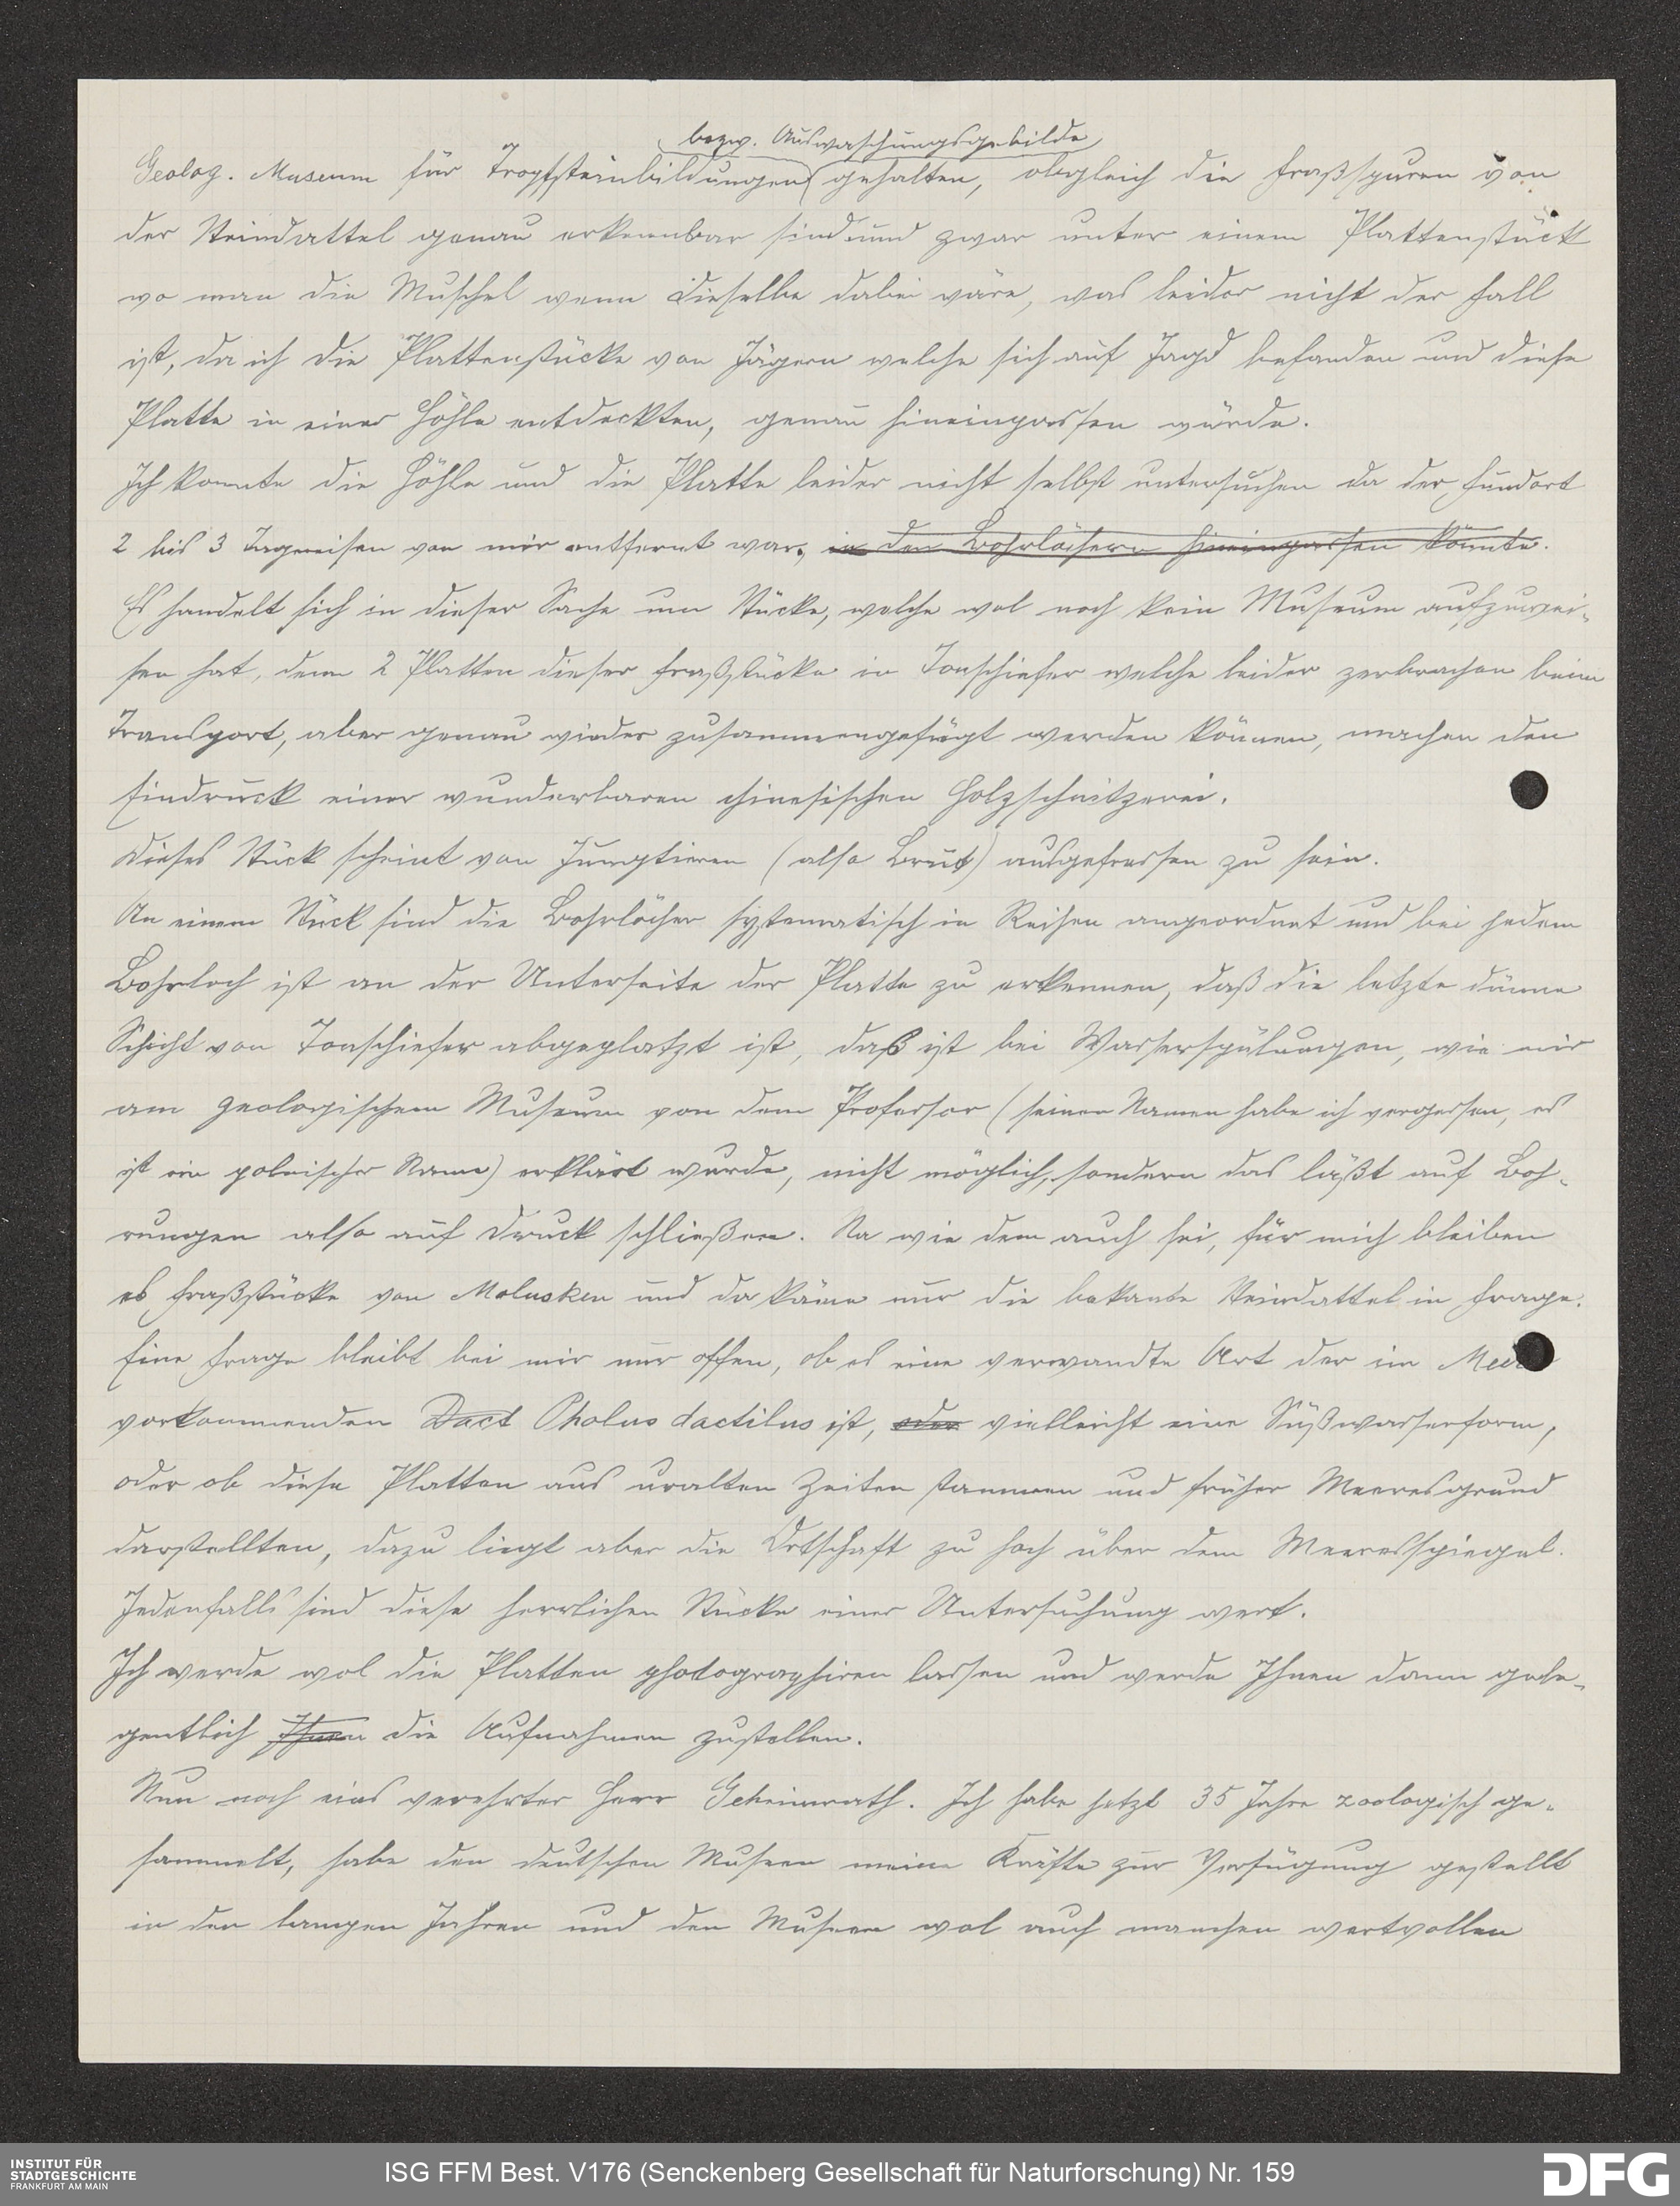 bezw. Auswaschungsgebilde
Geolog. Museum für Tropfsteinbildungen gehalten, obgleich die Fraßspuren von
der Steindattel genau erkennbar sind und zwar unter einem Plattenstück
wo man die Muschel wenn dieselbe dabei wäre, was leider nicht der Fall
ist, da ich die Plattenstücke von Jägern welche sich auf Jagd befanden und diese
Platte in einer Höhle entdeckten, genau hineinpassen würde.
Ich konnte die Höhle und die Platte leider nicht selbst untersuchen da der Fundort
2 bis 3 Tagereisen von mir entfernt war, in den Bohrlöchern hineinpassen könnte.
Es handelt sich in dieser Sache um Stücke, welche wol noch kein Museum aufzuwei-
sen hat, denn 2 Platten dieser Fraßstücke in Tonschiefer welche leider zerbrachen beim
Transport, aber genau wieder zusammengefügt werden können, machen den
Eindruck einer wunderbaren chinesischen Holzschnitzerei.
Dieses Stück scheint von Jungtieren (also Brut) ausgefressen zu sein.
An einem Stück sind die Bohrlöcher systematisch in Reihen angeordnet und bei jedem
Bohrloch ist an der Unterseite der Platte zu erkennen, daß die letzte dünne
Schicht von Tonschiefer abgeplatzt ist, daß ist bei Wasserspülungen, wie mir
am geologischem Museum von dem Professor (seinen Namen habe ich vergessen, es
ist ein polnischer Name) erklärt wurde, nicht möglich, sondern das läßt auf Boh-
rungen also auf Druck schließen. Na wie dem auch sei, für mich bleiben
es Fraßstücke von Molusken und da käme nur die bekante Steindattel in Frage.
Eine Frage bleibt bei mir nur offen, ob es eine verwandte Art der im Meere
vorkommenden Dact Pholus dactilus ist, oder vielleicht eine Süßwasserform,
oder ob diese Platten aus uralten Zeiten stammen und früher Meeresgrund
darstellten, dazu liegt aber die Ortschaft zu hoch über dem Meeresspiegel.
Jedenfalls sind diese herrlichen Stücke einer Untersuchung wert.
Ich werde wol die Platten photographiren lassen und werde Ihnen dann gele-
gentlich Ihnen die Aufnahmen zustellen.
Nun noch eins verehrter Herr Geheimrath. Ich habe jetzt 35 Jahre zoologisch ge-
sammelt, habe den deutschen Museen meine Kräfte zur Verfügung gestellt
in den langen Jahren und den Museen wol auch manchen wertvollen
INSTITUT FÜR
STADTGESCHICHTE
FRANKFURT AM MAIN
ISG FFM Best. V176 (Senckenberg Gesellschaft für Naturforschung) Nr. 159
DFG